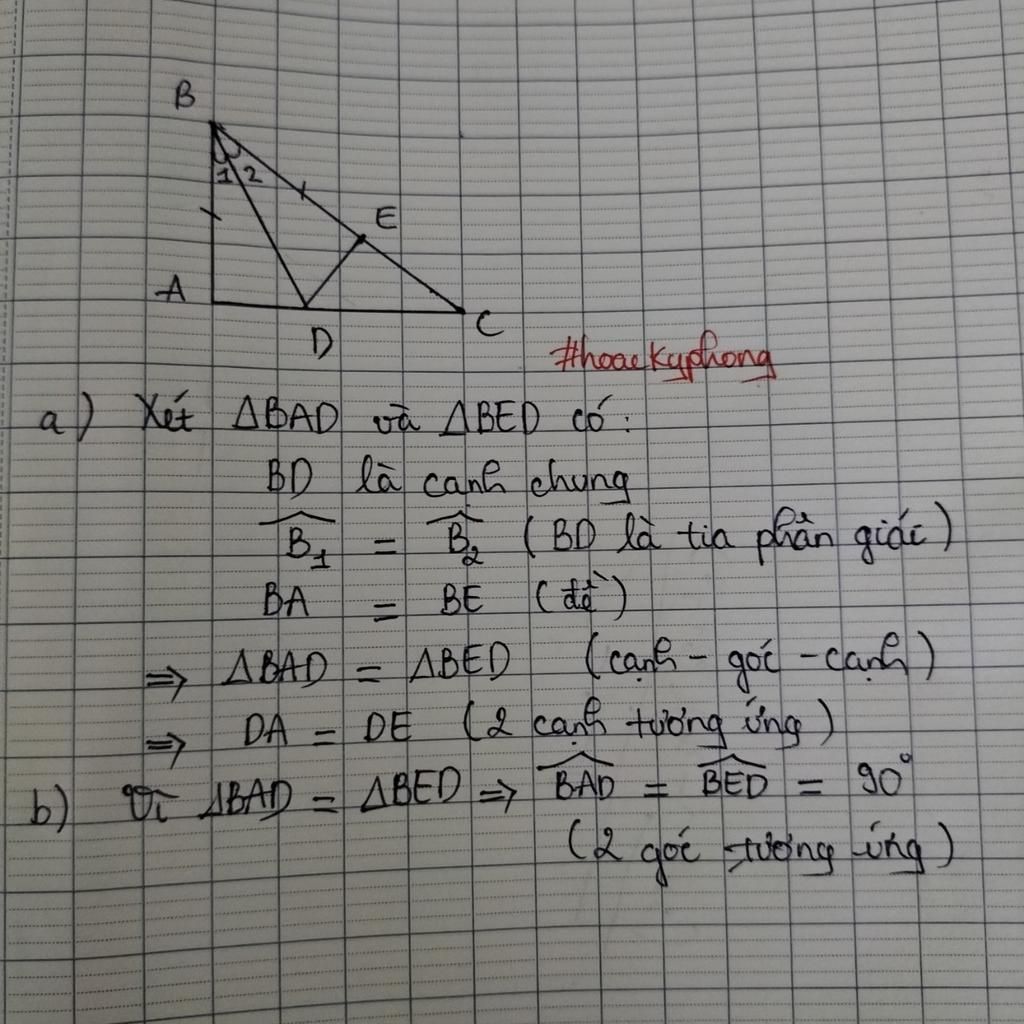 B
1 2
E
A
D
C
#hoackyphong
a) Xét ΔBAD và ΔBED có:
BD là cạnh chung
B̂₁ = B̂₂ (BD là tia phân giác)
BA = BE (đề)
⇒ ΔBAD = ΔBED (cạnh - góc - cạnh)
⇒ DA = DE (2 cạnh tương ứng)
b) Vì ΔBAD = ΔBED ⇒ \widehat{BAD} = \widehat{BED} = 90°
(2 góc tương ứng)